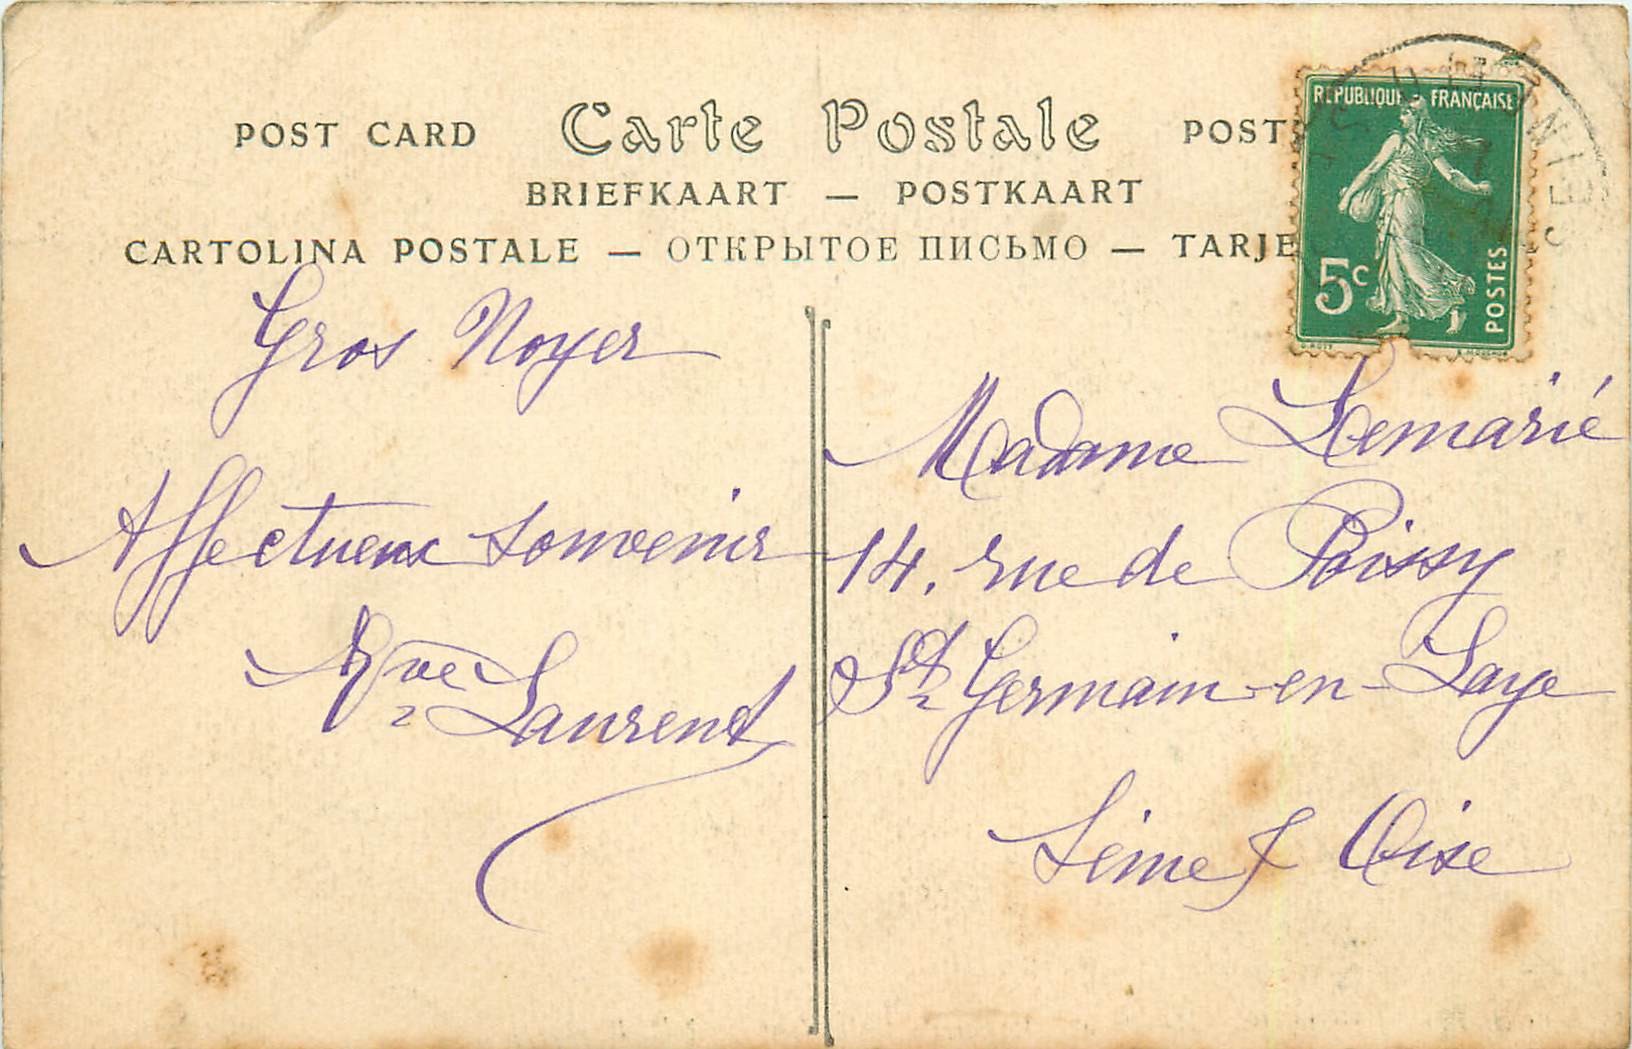 POST CARD Carte Postale POST
BRIEFKAART — POSTKAART
CARTOLINA POSTALE — ОТКРЫТОЕ ПИСЬМО — TARJE
REPUBLIQUE FRANÇAISE
5c
POSTES
Gros Noyer
Affectueux souvenir
Vve Laurent
Madame Lemarié
14, rue de Poissy
St Germain-en-Laye
Seine & Oise